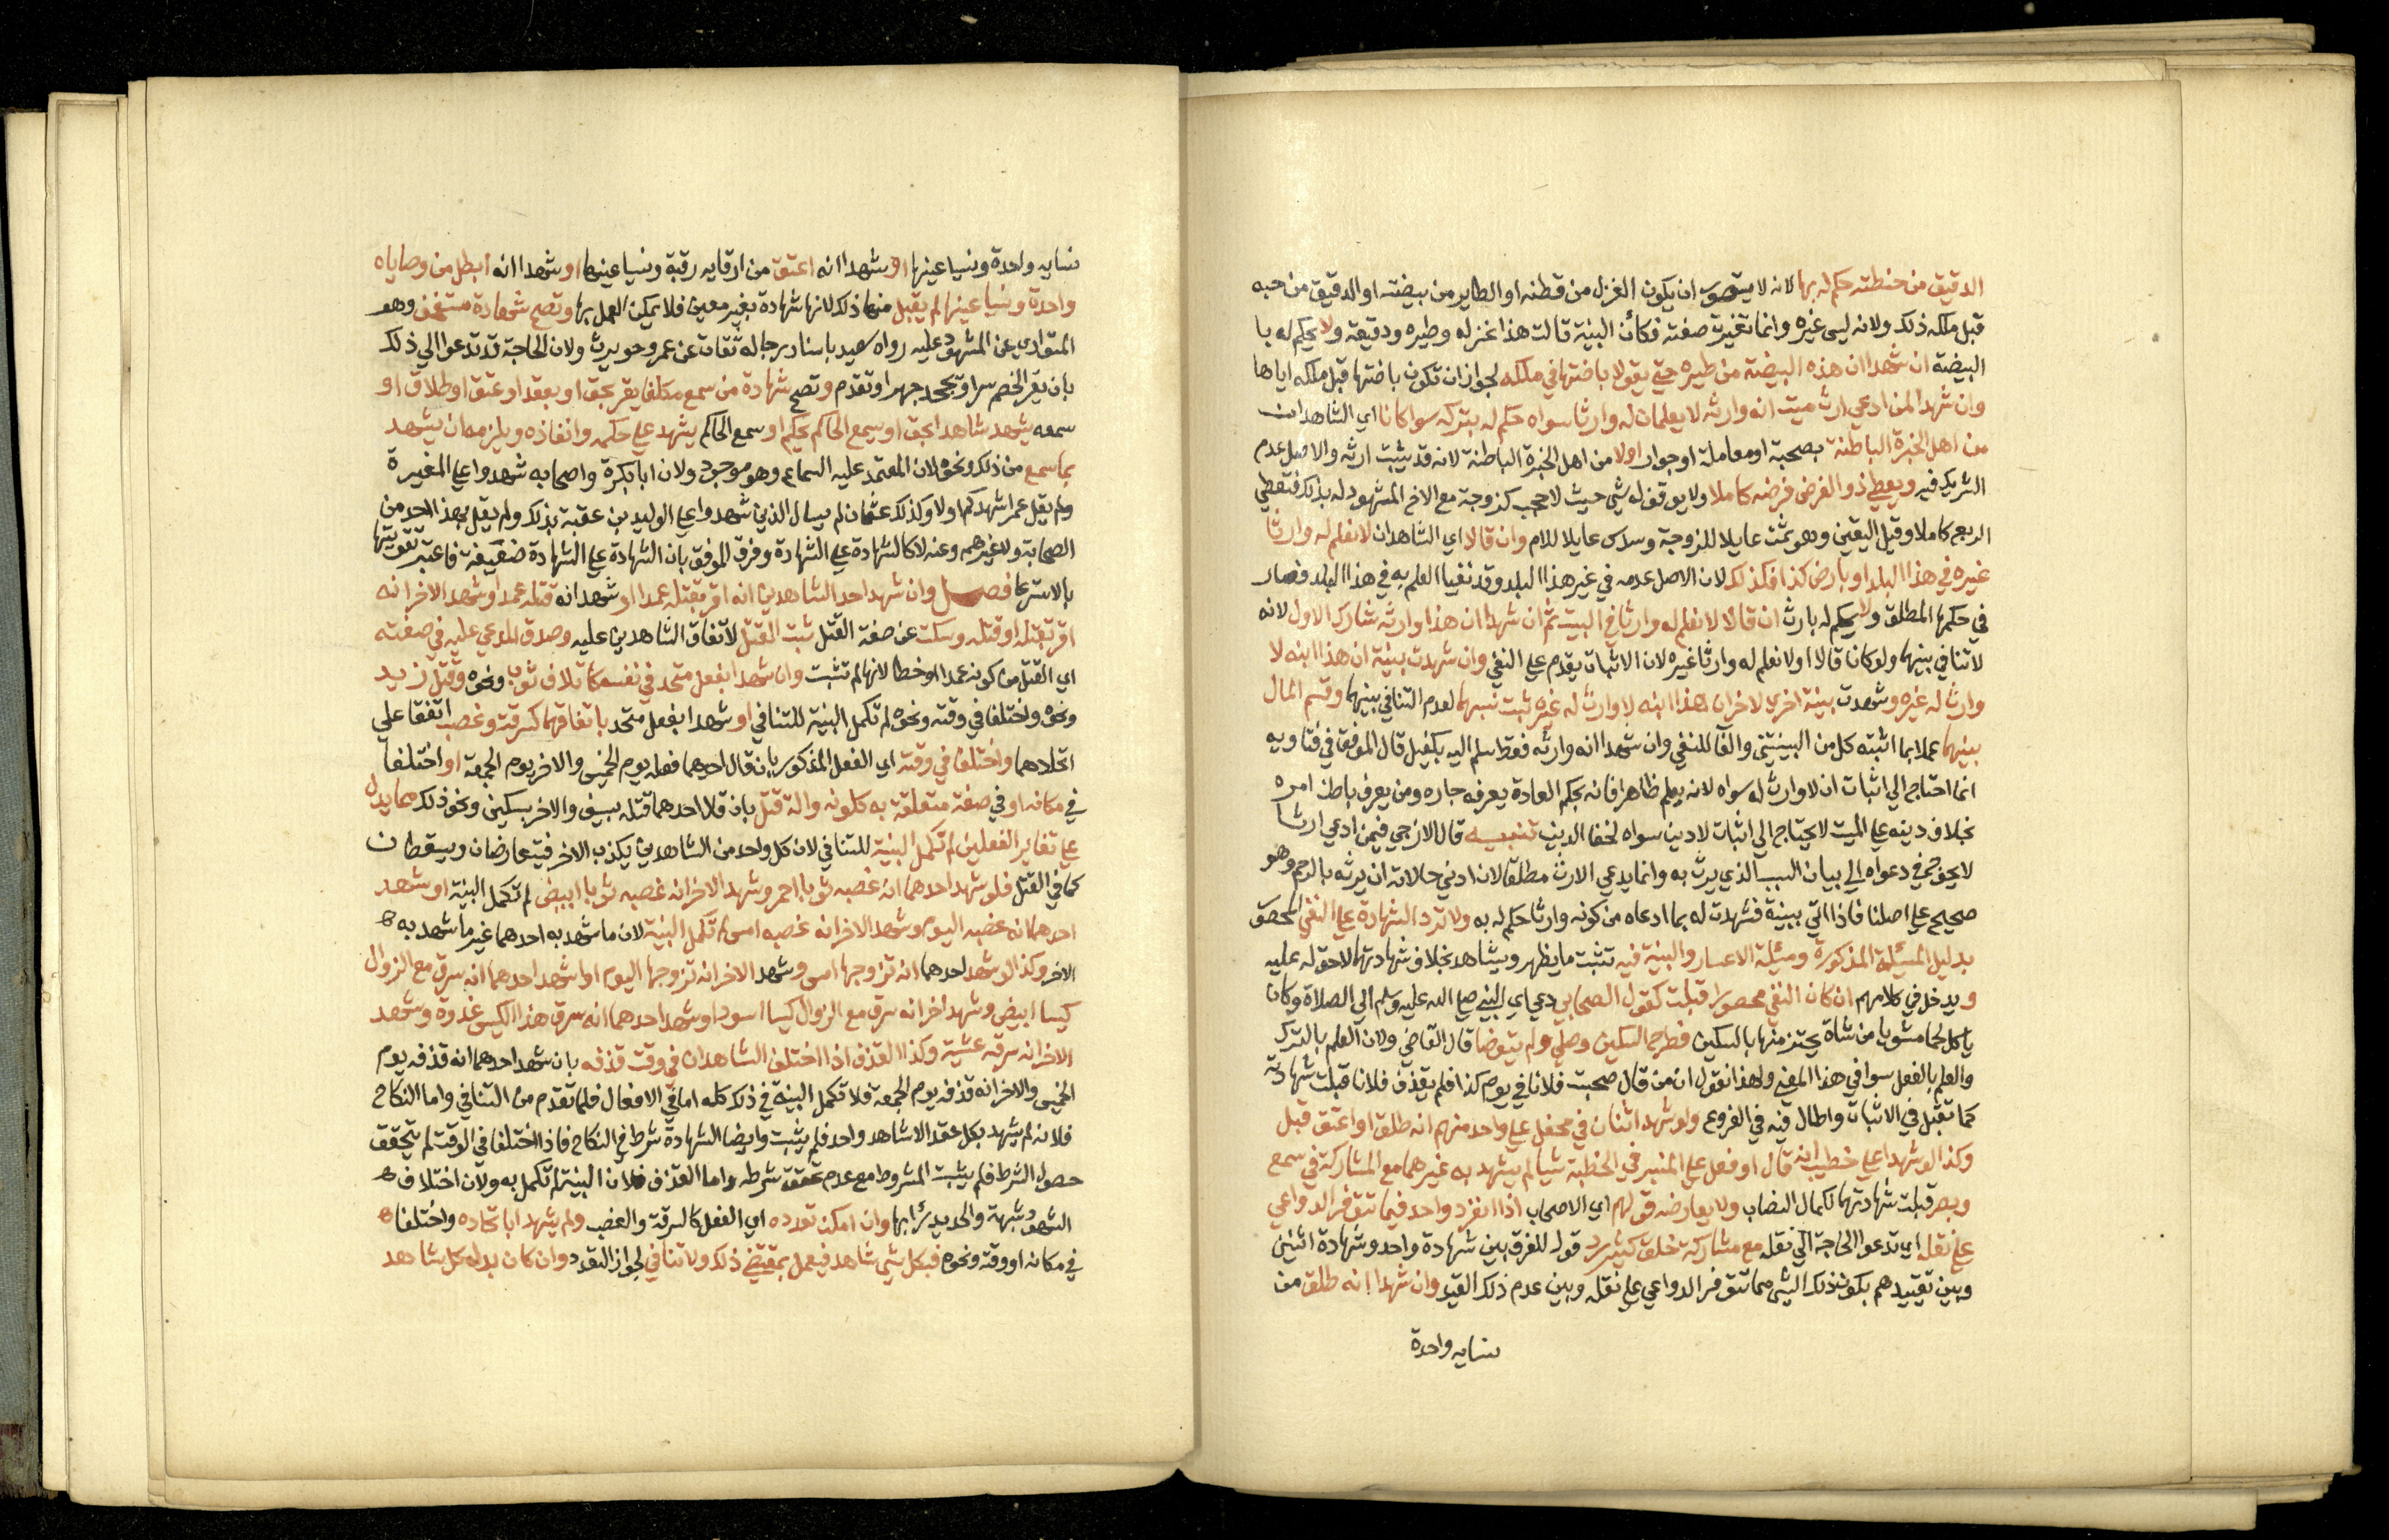 الدقيق من حنطته حكم له بها لانه لا يتصور ان يكون الغزل من قطنه او الطاير من بيضته او الدقيق من حبه
قبل ملكه ذلك ولانه ليس غيره وانما تغيرت صفته فكأن البينة قالت هذا غزله وطيره ودقيقه ولا يحكم له با
البيضة ان شهدا ان هذه البيضة من طيره حتي يقولا باضتها في ملكه لجواز ان تكون باضتها قبل ملكه اياها
وان شهدا لمن ادعي ارث ميت انه وارثه لا يعلمان له وارثا سواه حكم له بتركه سوا كانا اي الشاهدان
من اهل الخبرة الباطنة بصحبة او معاملة او جوار اولا من اهل الخبرة الباطنة لانه قد يثبت ارثه والاصل عدم
الشريك فيه ويعطي ذو الفرض فرضه كاملا ولا يوقف له شي حيث لا حجب كزوجة مع الاخ المشهود له بذلك فتعطي
الربع كاملا وقيل اليقين وهو ثمن عايلا للزوجة وسدس عايلا للام وان قالا اي الشاهدان لا نعلم له وارثا
غيره في هذا البلد او بارض كذا فكذلك لان الاصل عدمه في غير هذا البلد وقد نفيا العلم به في هذا البلد فصار
في حكمها المطلق ولا يحكم له بارث ان قالا لا نعلم له وارثا في البيت ثم ان شهدا ان هذا وارثه شارك الاول لانه
لا تنافي بينهما ولو كانا قالا اولا نعلم له وارثا غيره لان الاثبات يقدم علي النفي وان شهدت بينة ان هذا ابنه لا
وارث له غيره وشهدت بينة اخري لاخر ان هذا ابنه لا وارث له غيره ثبت نسبهما لعدم التنافي بينهما وقسم المال
بينهما عملا بما اثبته كل من البينتين والغا للنفي وان شهدا انه وارثه فقط سلم اليه بكفيل قال الموفق في فتاويه
انما احتاج الي اثبات ان لا وارث له سواه لانه يعلم ظاهرا فانه بحكم العادة يعرفه جاره ومن يعرف باطن امره
بخلاف دينه علي الميت لا يحتاج الي اثبات لا دين سواه لخفا الدين تنبيه قال الازجي فيمن ادعي ارثا
لا يحوج في دعواه الي بيان السبب الذي يرث به وانما يدعي الارث مطلقا لان ادني حالاته ان يرثه بالرحم وهو
صحيح علي اصلنا فاذا اتي ببينة فشهدت له بما ادعاه من كونه وارثا حكم له به ولا ترد الشهادة علي النفي المحصور
بدليل المسئلة المذكورة ومسئلة الاعسار والبينة فيه تثبت ما يظهر ويشاهد بخلاف شهادتهما لا حق له عليه
ويدخل في كلامهم ان كان النفي محصورا قبلت كقول الصحابي دعي اي النبي صلي الله عليه وسلم الي الصلاة وكان
ياكل لحما مشويا من شاة يحتز منها بالسكين فطرح السكين وصلي ولم يتوضا قال القاضي ولان العلم بالترك
والعلم بالفعل سوا في هذا المعني ولهذا نقول ان من قال صحبت فلانا في يوم كذا فلم يقذف فلانا قبلت شهادته
كما تقبل في الاثبات واطال فيه في الفروع ولو شهد اثنان في محفل علي واحد منهم انه طلق او اعتق قبل
وكذا لو شهدا علي خطيب انه قال او فعل علي المنبر في الخطبة شيا لم يشهد به غيرهما مع المشاركة في سمع
وبصر قبلت شهادتهما لكمال النصاب ولا يعارضه قولهم اي الاصحاب اذا انفرد واحد فيما تتوفر الدواعي
علي نقله اي تدعو الحاجة الي نقله مع مشاركة خلق كثير رد قوله للفرق بين شهادة واحد وشهادة اثنين
وبين تقييدهم بكون ذلك الشي مما تتوفر الدواعي علي نقله وبين عدم ذلك القيد وان شهدا انه طلق من
نسايه واحدة
نسايه واحدة ونسيا عينها او شهدا انه اعتق من ارقايه رقبة ونسيا عينها او شهدا انه ابطل من وصاياه
واحدة ونسيا عينها لم يقبل منهما ذلك لانها شهادة بغير معين فلا يمكن العمل بها وتصح شهادة مستخف وهو
المتواري عن المشهود عليه رواه سعيد باسناد رجاله ثقات عن عمرو حويرث ولان الحاجة قد تدعوا الي ذلك
بان يقر الخصم سرا ويجحد جهرا وتقدم وتصح شهادة من سمع مكلفا يقر بحق او بعقد او عتق او طلاق او
سمعه يشهد شاهدا بحق او سمع الحاكم يحكم او سمع الحاكم يشهد علي حكمه وانفاذه ويلزمه ان يشهد
بما سمع من ذلك ونحوه لان المعتمد عليه السماع وهو موجود ولان ابا بكرة واصحابه شهدوا علي المغيرة
ولم يقل عمر اشهدكم اولا وكذلك عثمان لم يسال الذين شهدوا علي الوليد بن عقبة بذلك ولم يقل بهذا احد من
الصحابة ولا غيرهم وعنه لا كالشهادة علي الشهادة وفرق الموفق بان الشهادة علي الشهادة ضعيفة فاعتبر تقويتها
بالاسترعا فصل وان شهد احد الشاهدين انه اقر بقتله عمدا او شهد انه قتله عمدا وشهد الاخر انه
اقر بقتله او قتله وسكت عن صفة القتل ثبت القتل لاتفاق الشاهدين عليه وصدق المدعي عليه في صفته
اي القتل من كونه عمدا او خطا لانها لم تثبت وان شهدا بفعل متحد في نفسه كاتلاف ثوب ونحوه وقتل زيد
ونحوه واختلفا في وقته ونحوه لم تكمل البينة للتنافي او شهدا بفعل متحد باتفاقهما كسرقة وغصب اتفقا علي
اتحادهما واختلفا في وقته اي الفعل المذكور بان قال احدهما فعله يوم الخميس والاخر يوم الجمعة او اختلفا
في مكانه او في صفة متعلقة به كلونه والة قتل بان قال احدهما قتله بسيف والاخر بسكين ونحو ذلك مما يدل
علي تغاير الفعلين لم تكمل البينة للتنافي لان كل واحد من الشاهدين يكذب الاخر فيتعارضان ويسقطان
كما في القتل فلو شهد احدهما انه غصبه ثوبا احمر وشهد الاخر انه غصبه ثوبا ابيض لم تكمل البينة او شهد
احدهما انه غصبه اليوم وشهد الاخر انه غصبه امس لم تكمل البينة لان ما شهد به احدهما غير ما شهد به
الاخر وكذا لو شهد احدهما انه تزوجها امس وشهد الاخر انه تزوجها اليوم او شهد احدهما انه سرق مع الزوال
كيسا ابيض وشهد اخر انه سرق مع الزوال كيسا اسود او شهد احدهما انه سرق هذا الكيس غدوة وشهد
الاخر انه سرقه عشية وكذا القذف اذا اختلف الشاهدان في وقت قذفه بان شهد احدهما انه قذفه يوم
الخميس والاخر انه قذفه يوم الجمعة فلا تكمل البينة في ذلك كله اما في الافعال فلما تقدم من التنافي واما النكاح
فلانه لم يشهد بكل عقد الا شاهد واحد فلم يثبت وايضا الشهادة شرط في النكاح فاذا اختلفا في الوقت لم يتحقق
حصول الشرط فلم يثبت المشروط مع عدم تحقق شرطه واما القذف فلان البينة لم تكمل به ولان اختلاف
الشهود شبهة والحد يدرا بها وان امكن تعدده اي الفعل كالسرقة والغصب ولم يشهدا باتحاده واختلفا
في مكانه او وقته ونحوه فبكل شي شاهد فيعمل بمقتضي ذلك ولا تنافي لجواز التعدد وان كان بدله كل شاهد